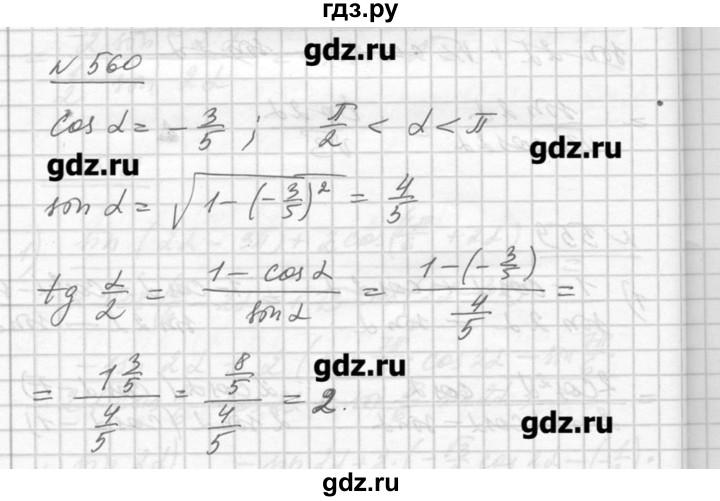 гдз.ру
gdz.ru
№ 560
cos α = -3/5 ; π/2 < α < π
gdz.ru
gdz.ru
sin α = √(1-(-3/5)²) = 4/5
tg α/2 = (1 - cos α)/(sin α) = (1-(-3/5))/(4/5) =
gdz.ru
= (1 3/5)/(4/5) = (8/5)/(4/5) = 2.
gdz.ru
gdz.ru